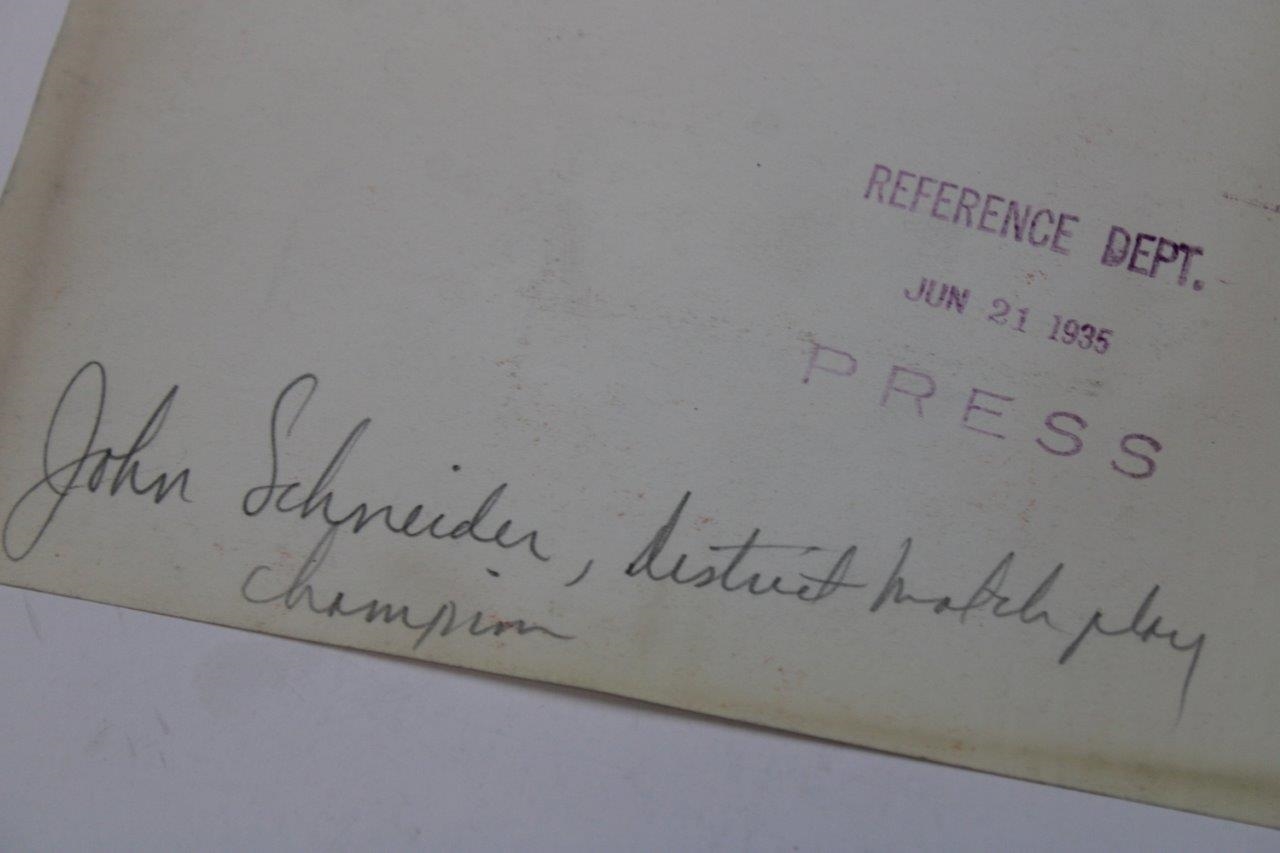 REFERENCE DEPT.
JUN 21 1935
PRESS
John Schneider, District match play
champion